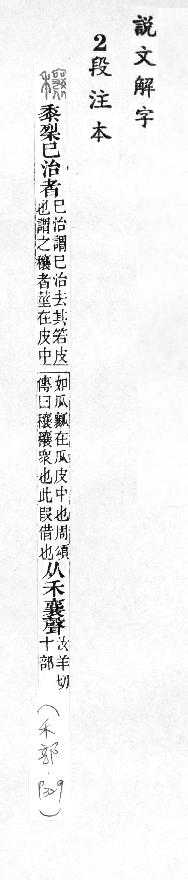 說文解字
2段注本
穰
黍䅣巳治者
巳治謂巳治去其箬皮
也謂之穰者莖在皮中
如瓜瓤在瓜皮中也周頌
傳曰穰穰衆也此叚借也
从禾襄聲
汝羊切
十部
(禾部